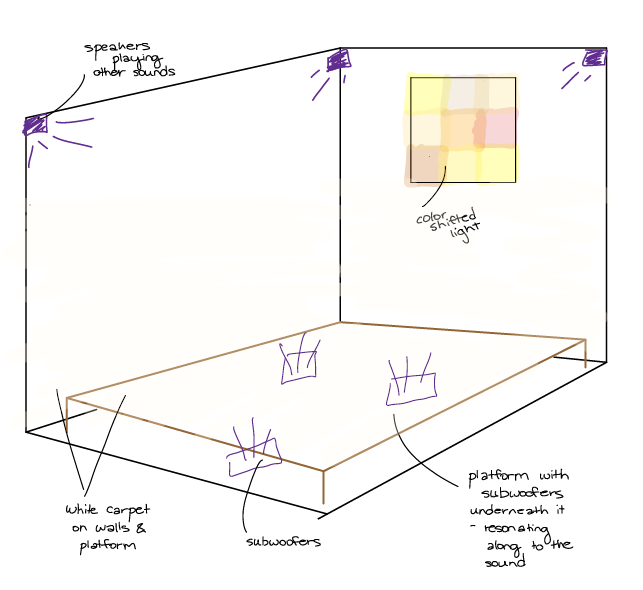 speakers
playing
other sounds
color
shifted
light
white carpet
on walls &
platform
subwoofers
platform with
subwoofers
underneath it
- resonating
along to the
sound